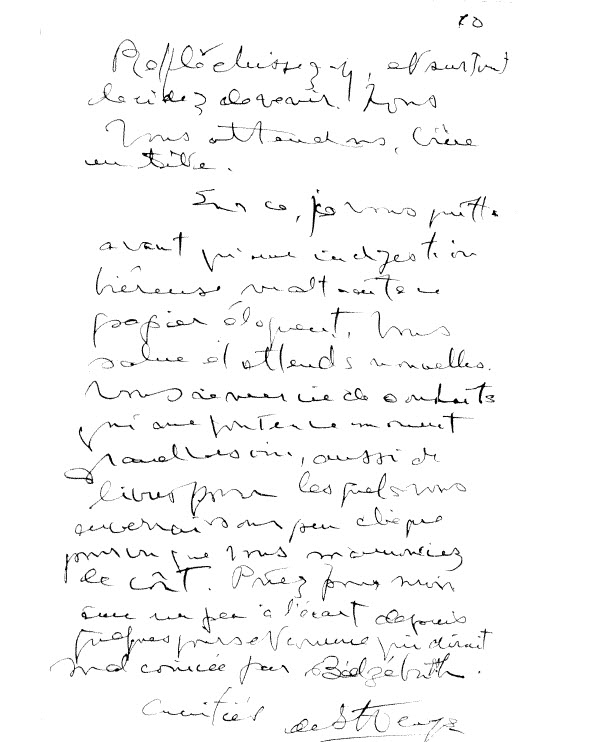 10
Réfléchissez-y, et surtout
décidez de venir. Nous
vous attendons, bière
en tête.
Sur ce, je vous quitte
avant qu'une indigestion
biéreuse ne
papier éloquent. Vous
salue et attends nouvelles.
Vous remercie de souhaits
qui en ce moment
grand besoin, aussi de
livres pour lesquels vous
enverrais un peu chèque
pourvu que vous m'annonciez
le coût. Priez pour mon
âme un peu à l'écart depuis
quelques jours et comme qui dirait
mal coincée par Belzébuth.
Amitiés